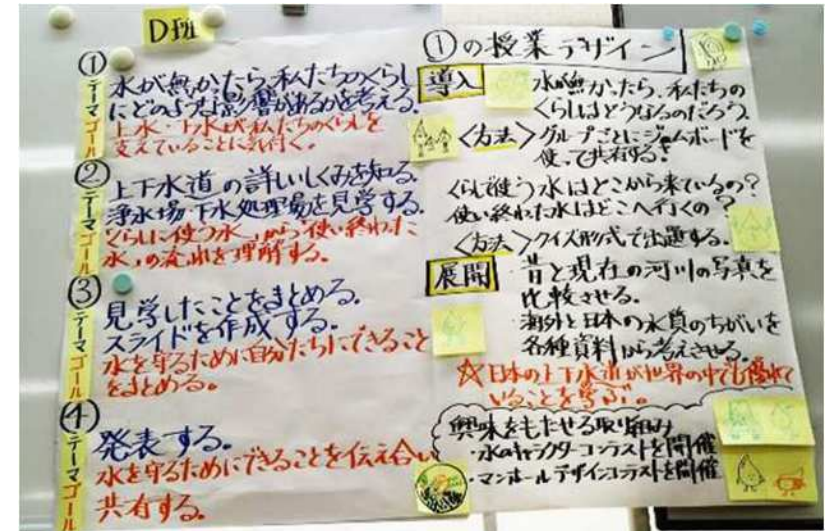 D班
①
テーマ
水が無かったら、私たちのくらし
にどのような影響があるかを考える。
ゴール
上水・下水が私たちのくらしを
支えていることに気付く。
②
テーマ
上下水道の詳しいしくみを知る。
浄水場・下水処理場を見学する。
ゴール
"くらしに使う水"から"使い終わった
水"の流れを理解する。
③
テーマ
見学したことをまとめる。
スライドを作成する。
ゴール
水を守るために自分たちにできること
をまとめる。
④
テーマ
発表する。
ゴール
水を守るためにできることを伝え合い
共有する。
①の授業デザイン
導入
水が無かったら、私たちの
くらしはどうなるのだろう。
〈方法〉グループごとにジャムボードを
使って共有する。
くらしで使う水はどこから来ているの?
使い終わった水はどこへ行くの?
〈方法〉クイズ形式で出題する。
展開
・昔と現在の河川の写真を
比較させる。
・海外と日本の水質のちがいを
各種資料から考えさせる。
☆日本の上下水道が世界の中でも優れて
いることを学ぶ。
興味をもたせる取り組み
・水のキャラクターコンテストを開催
・マンホールデザインコンテストを開催